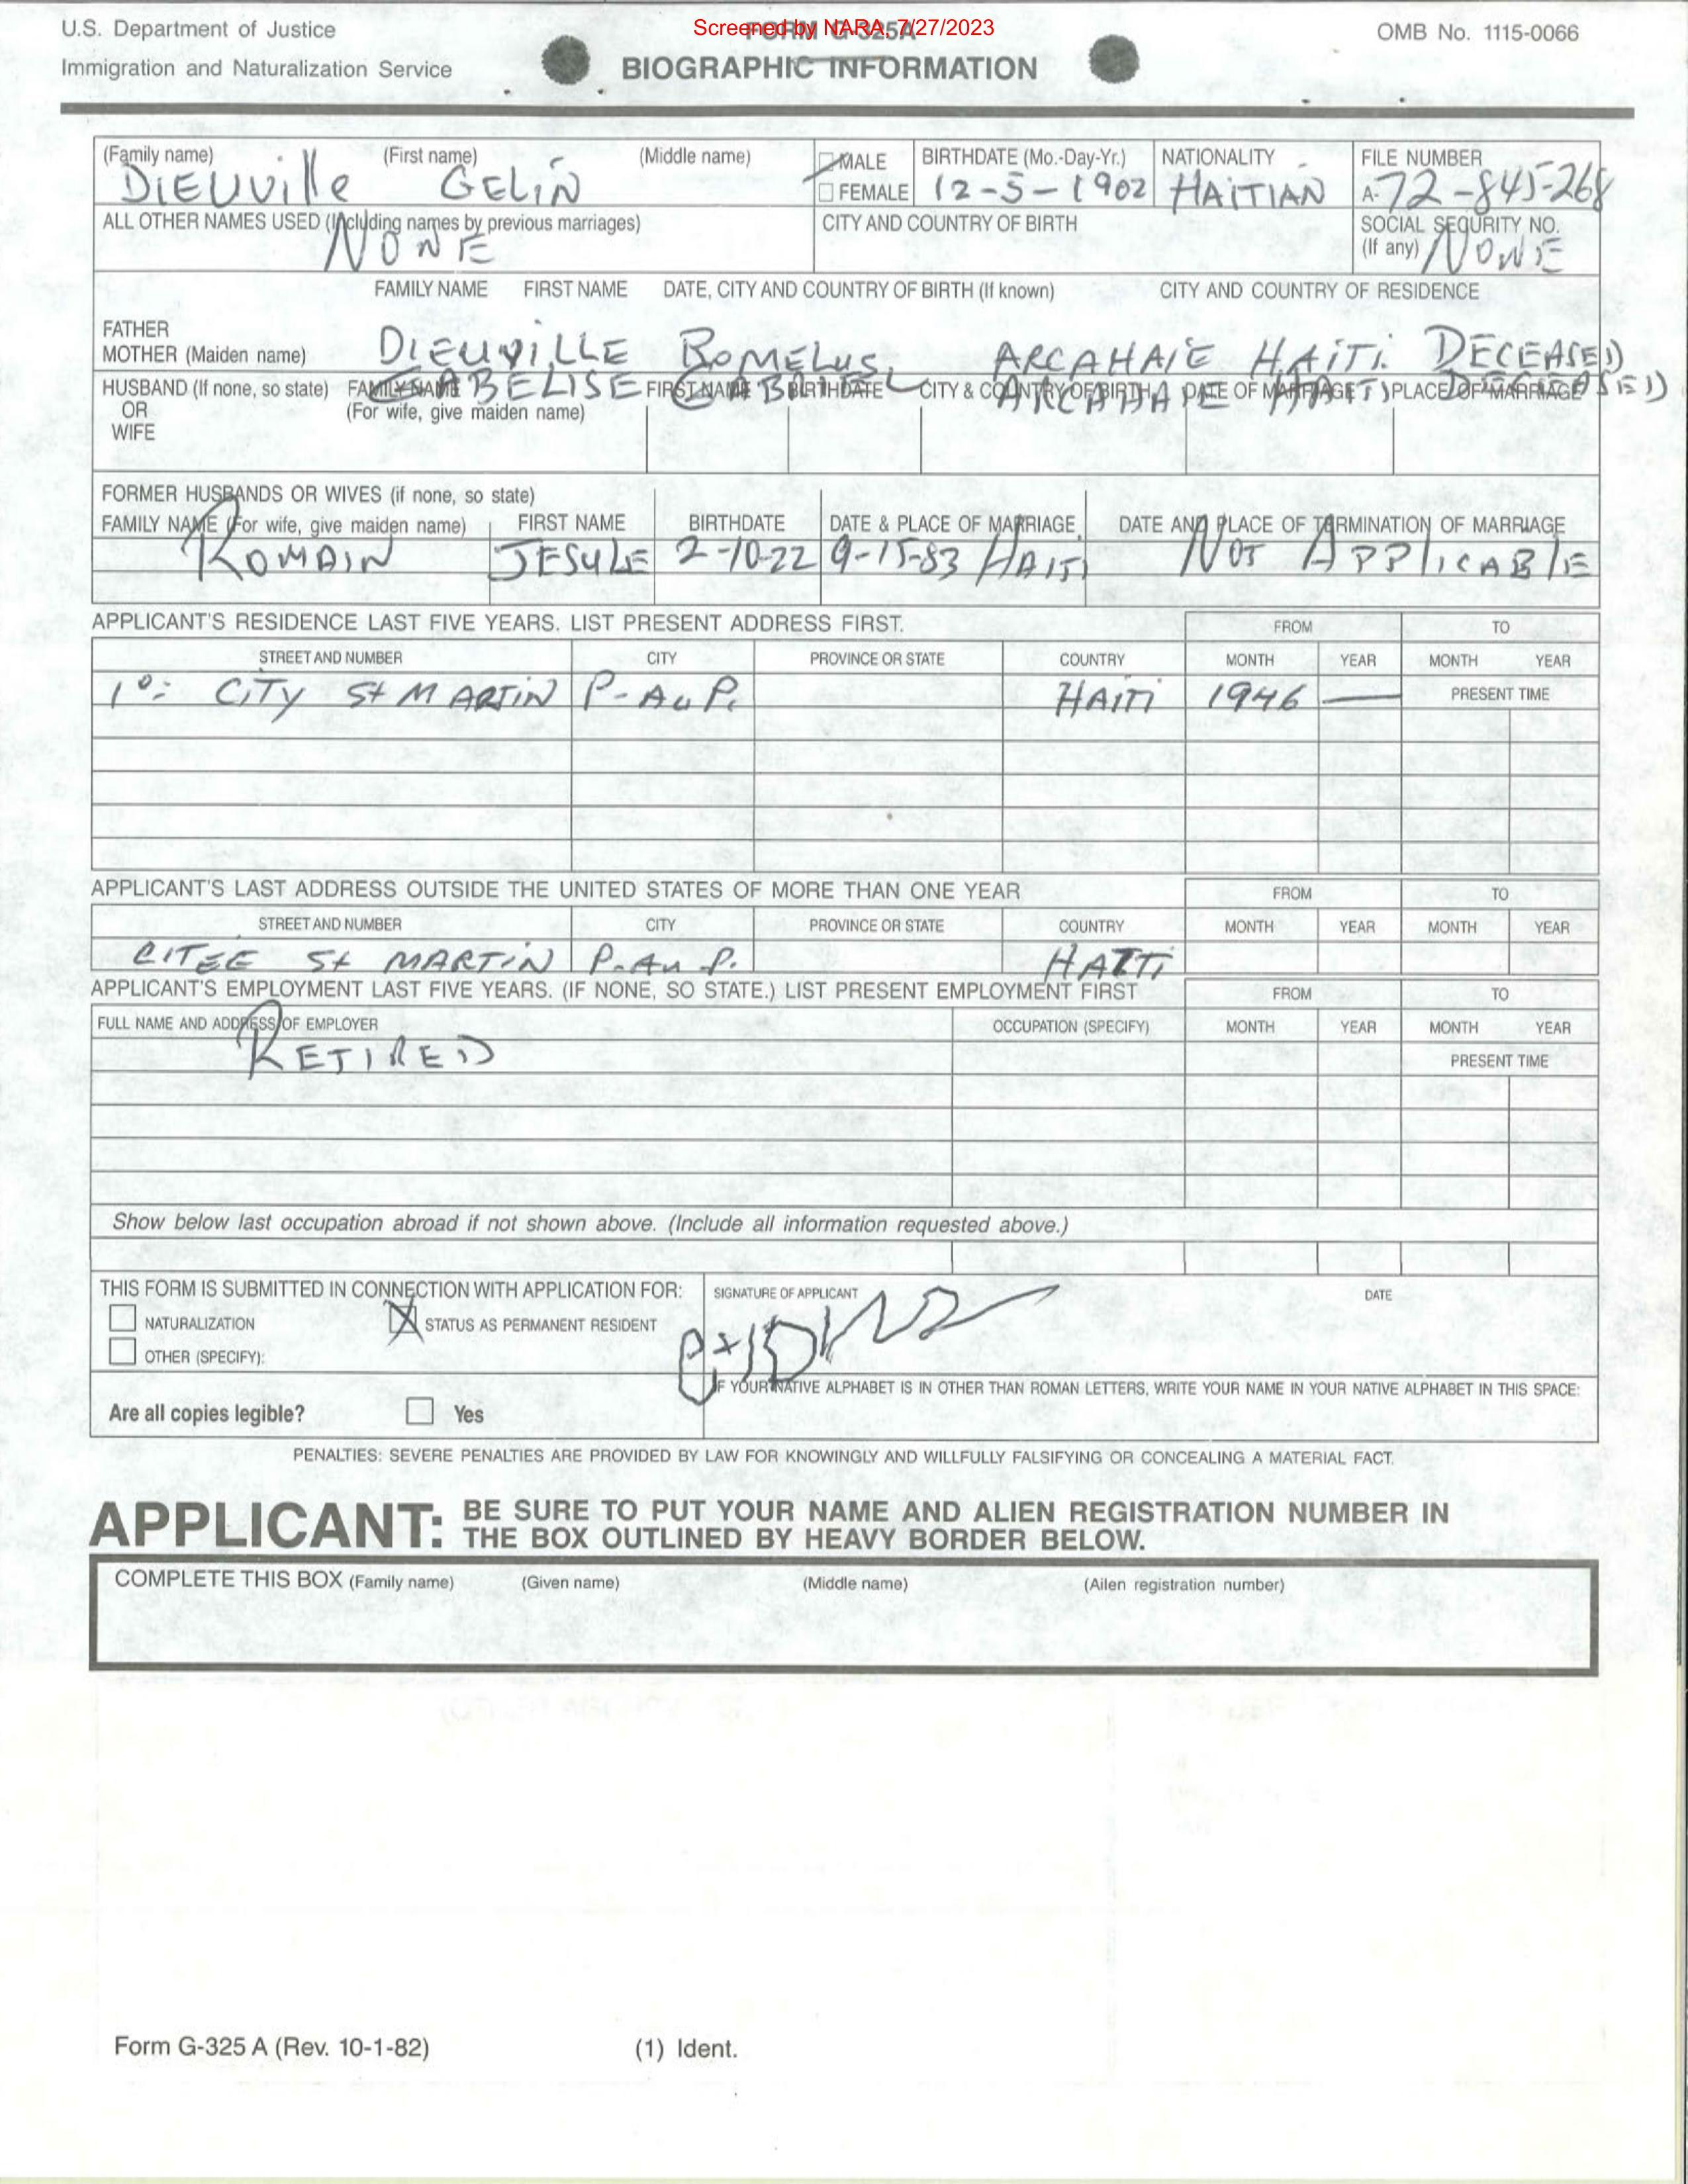 U.S. Department of Justice
Immigration and Naturalization Service
Screened by NARA, 7/27/2023
FORM G-325A
BIOGRAPHIC INFORMATION
OMB No. 1115-0066
(Family name) (First name) (Middle name) MALE BIRTHDATE (Mo.-Day-Yr.) NATIONALITY FILE NUMBER
DIEUVille GELIN FEMALE 12-5-1902 HAITIAN A-72-845-268
ALL OTHER NAMES USED (Including names by previous marriages) CITY AND COUNTRY OF BIRTH SOCIAL SECURITY NO.
NONE (If any) NONE
FAMILY NAME FIRST NAME DATE, CITY AND COUNTRY OF BIRTH (If known) CITY AND COUNTRY OF RESIDENCE
FATHER
MOTHER (Maiden name) DIEUVILLE ROMELUS, ARCAHAIE HAITI. DECEASED
HUSBAND (If none, so state) FAMILY NAME FIRST NAME BIRTHDATE CITY & COUNTRY OF BIRTH DATE OF MARRIAGE PLACE OF MARRIAGE
OR (For wife, give maiden name)
WIFE
FORMER HUSBANDS OR WIVES (if none, so state)
FAMILY NAME (For wife, give maiden name) FIRST NAME BIRTHDATE DATE & PLACE OF MARRIAGE DATE AND PLACE OF TERMINATION OF MARRIAGE
ROMAIN JESULE 2-10-22 9-15-83 HAITI NOT APPLICABLE
APPLICANT'S RESIDENCE LAST FIVE YEARS. LIST PRESENT ADDRESS FIRST. FROM TO
STREET AND NUMBER CITY PROVINCE OR STATE COUNTRY MONTH YEAR MONTH YEAR
1º: CITY St MARTIN P-Au P. HAITI 1946 — PRESENT TIME
APPLICANT'S LAST ADDRESS OUTSIDE THE UNITED STATES OF MORE THAN ONE YEAR FROM TO
STREET AND NUMBER CITY PROVINCE OR STATE COUNTRY MONTH YEAR MONTH YEAR
CITEE St MARTIN P-Au-P. HAITI
APPLICANT'S EMPLOYMENT LAST FIVE YEARS. (IF NONE, SO STATE.) LIST PRESENT EMPLOYMENT FIRST FROM TO
FULL NAME AND ADDRESS OF EMPLOYER OCCUPATION (SPECIFY) MONTH YEAR MONTH YEAR
RETIRED PRESENT TIME
Show below last occupation abroad if not shown above. (Include all information requested above.)
THIS FORM IS SUBMITTED IN CONNECTION WITH APPLICATION FOR: SIGNATURE OF APPLICANT DATE
NATURALIZATION STATUS AS PERMANENT RESIDENT
OTHER (SPECIFY):
IF YOUR NATIVE ALPHABET IS IN OTHER THAN ROMAN LETTERS, WRITE YOUR NAME IN YOUR NATIVE ALPHABET IN THIS SPACE:
Are all copies legible? Yes
PENALTIES: SEVERE PENALTIES ARE PROVIDED BY LAW FOR KNOWINGLY AND WILLFULLY FALSIFYING OR CONCEALING A MATERIAL FACT.
APPLICANT: BE SURE TO PUT YOUR NAME AND ALIEN REGISTRATION NUMBER IN
THE BOX OUTLINED BY HEAVY BORDER BELOW.
COMPLETE THIS BOX (Family name) (Given name) (Middle name) (Ailen registration number)
Form G-325 A (Rev. 10-1-82) (1) Ident.